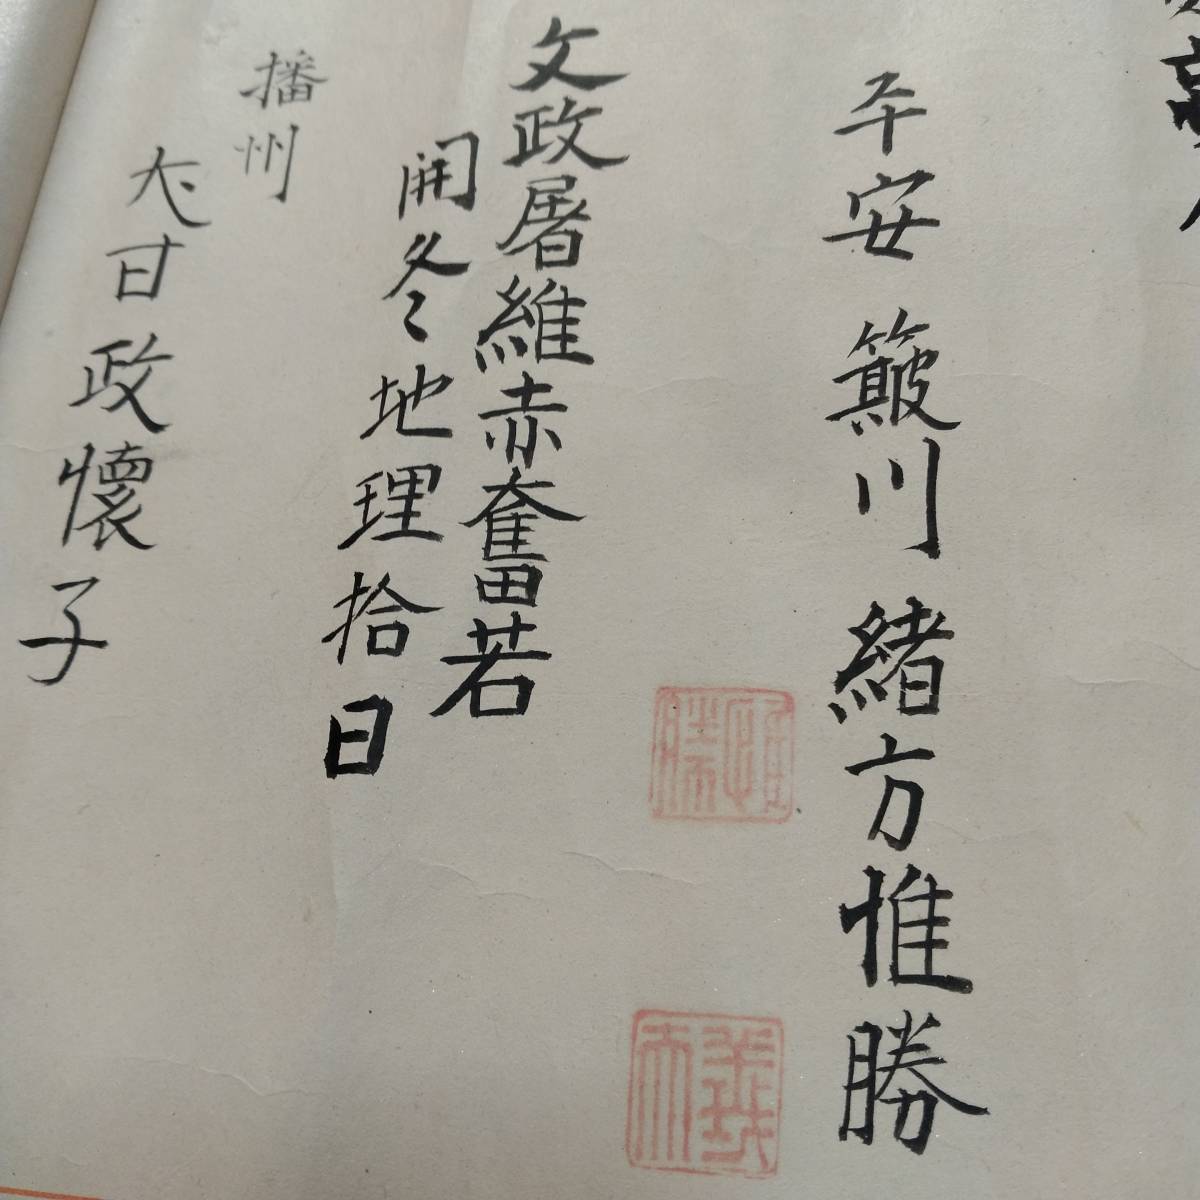 平安 簸川 緒方惟勝
惟勝
文政屠維赤奮若
開冬地理拾日
播州
犬甘政懐子